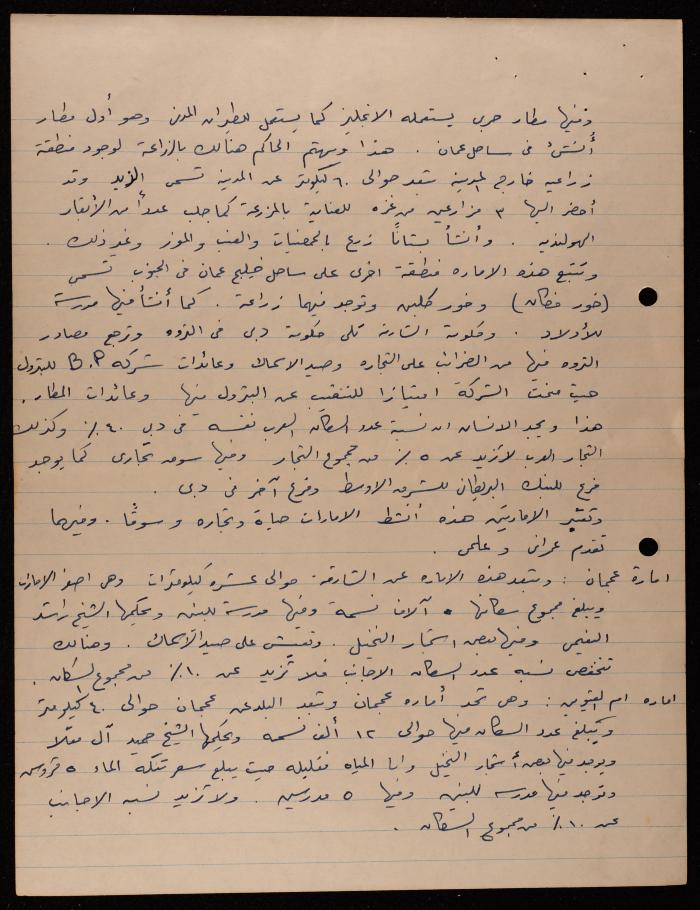 وفيها مطار حربي يستعمله الانجليز كما يستعمل للطيران المدني وهو أول مطار
أُنشئ في ساحل عمان . هذا ويهتم الحاكم هنالك بالزراعة لوجود منطقة
زراعيه خارج المدينه تبعد حوالى ٦٠ كيلومتر عن المدينه تسمى الزيد وقد
أحضر اليها ٣ مزارعين من غزه للعناية بالمزرعة كما جلب عدداً من الأبقار
الهولنديه . وأنشأ بستاناً زرع بالحمضيات والعنب والموز وغير ذلك .
وتتبع هذه الاماره منطقة اخرى على ساحل خليج عمان في الجنوب تسمى
(خور فكان) وخور كلبن وتوجد فيهما زراعة . كما أنشأ فيها مدرسة
للأولاد . وحكومة الشارقة تلي حكومة دبى في الثروه وترجع مصادر
الثروه فيها من الضرائب على التجاره وصيد الاسماك وعائدات شركه B.P للبترول
حيث منحت الشركة امتيازا للتنقيب عن البترول فيها وعائدات المطار .
هذا ويجد الانسان ان نسبة عدد السكان العرب نفسه في دبي ٤٠٪ وكذلك
التجار العرب لا تزيد عن ٥٪ من مجموع التجار وفيها سوق تجارى كما يوجد
فرع للبنك البريطاني للشرق الاوسط وفرع آخر في دبى .
وتعتبر الامارتين هذه أنشط الامارات حياة وتجاره وسوقًا . وفيهما
تقدم عمراني وعلمى .
امارة عجمان : وتبعد هذه الاماره عن الشارقة حوالى عشره كيلومترات وهى اصغر الامارات
ويبلغ مجموع سكانها ٥ آلاف نسمة وفيها مدرسة للبنين ويحكمها الشيخ راشد
النعيمى وفيها بعض اشجار النخيل . وتعيش على صيد الأسماك . وهنالك
تنخفض نسبه عدد السكان الاجانب فلا تزيد عن ١٠٪ من مجموع السكان .
اماره ام القيوين : وهى تحد أماره عجمان وتبعد البلد عن عجمان حوالى ٤٠ كيلومتر
ويبلغ عدد السكان فيها حوالى ١٢ ألف نسمه ويحكمها الشيخ حميد آل معلا
ويوجد فيها بعض أشجار النخيل واما المياه فقليله حيث يبلغ سعر تنكة الماء ٥ قروش
وتوجد فيها مدرسه للبنين وفيها ٥ مدرسين . ولا تزيد نسبه الاجانب
عن ١٠٪ من مجموع السكان .